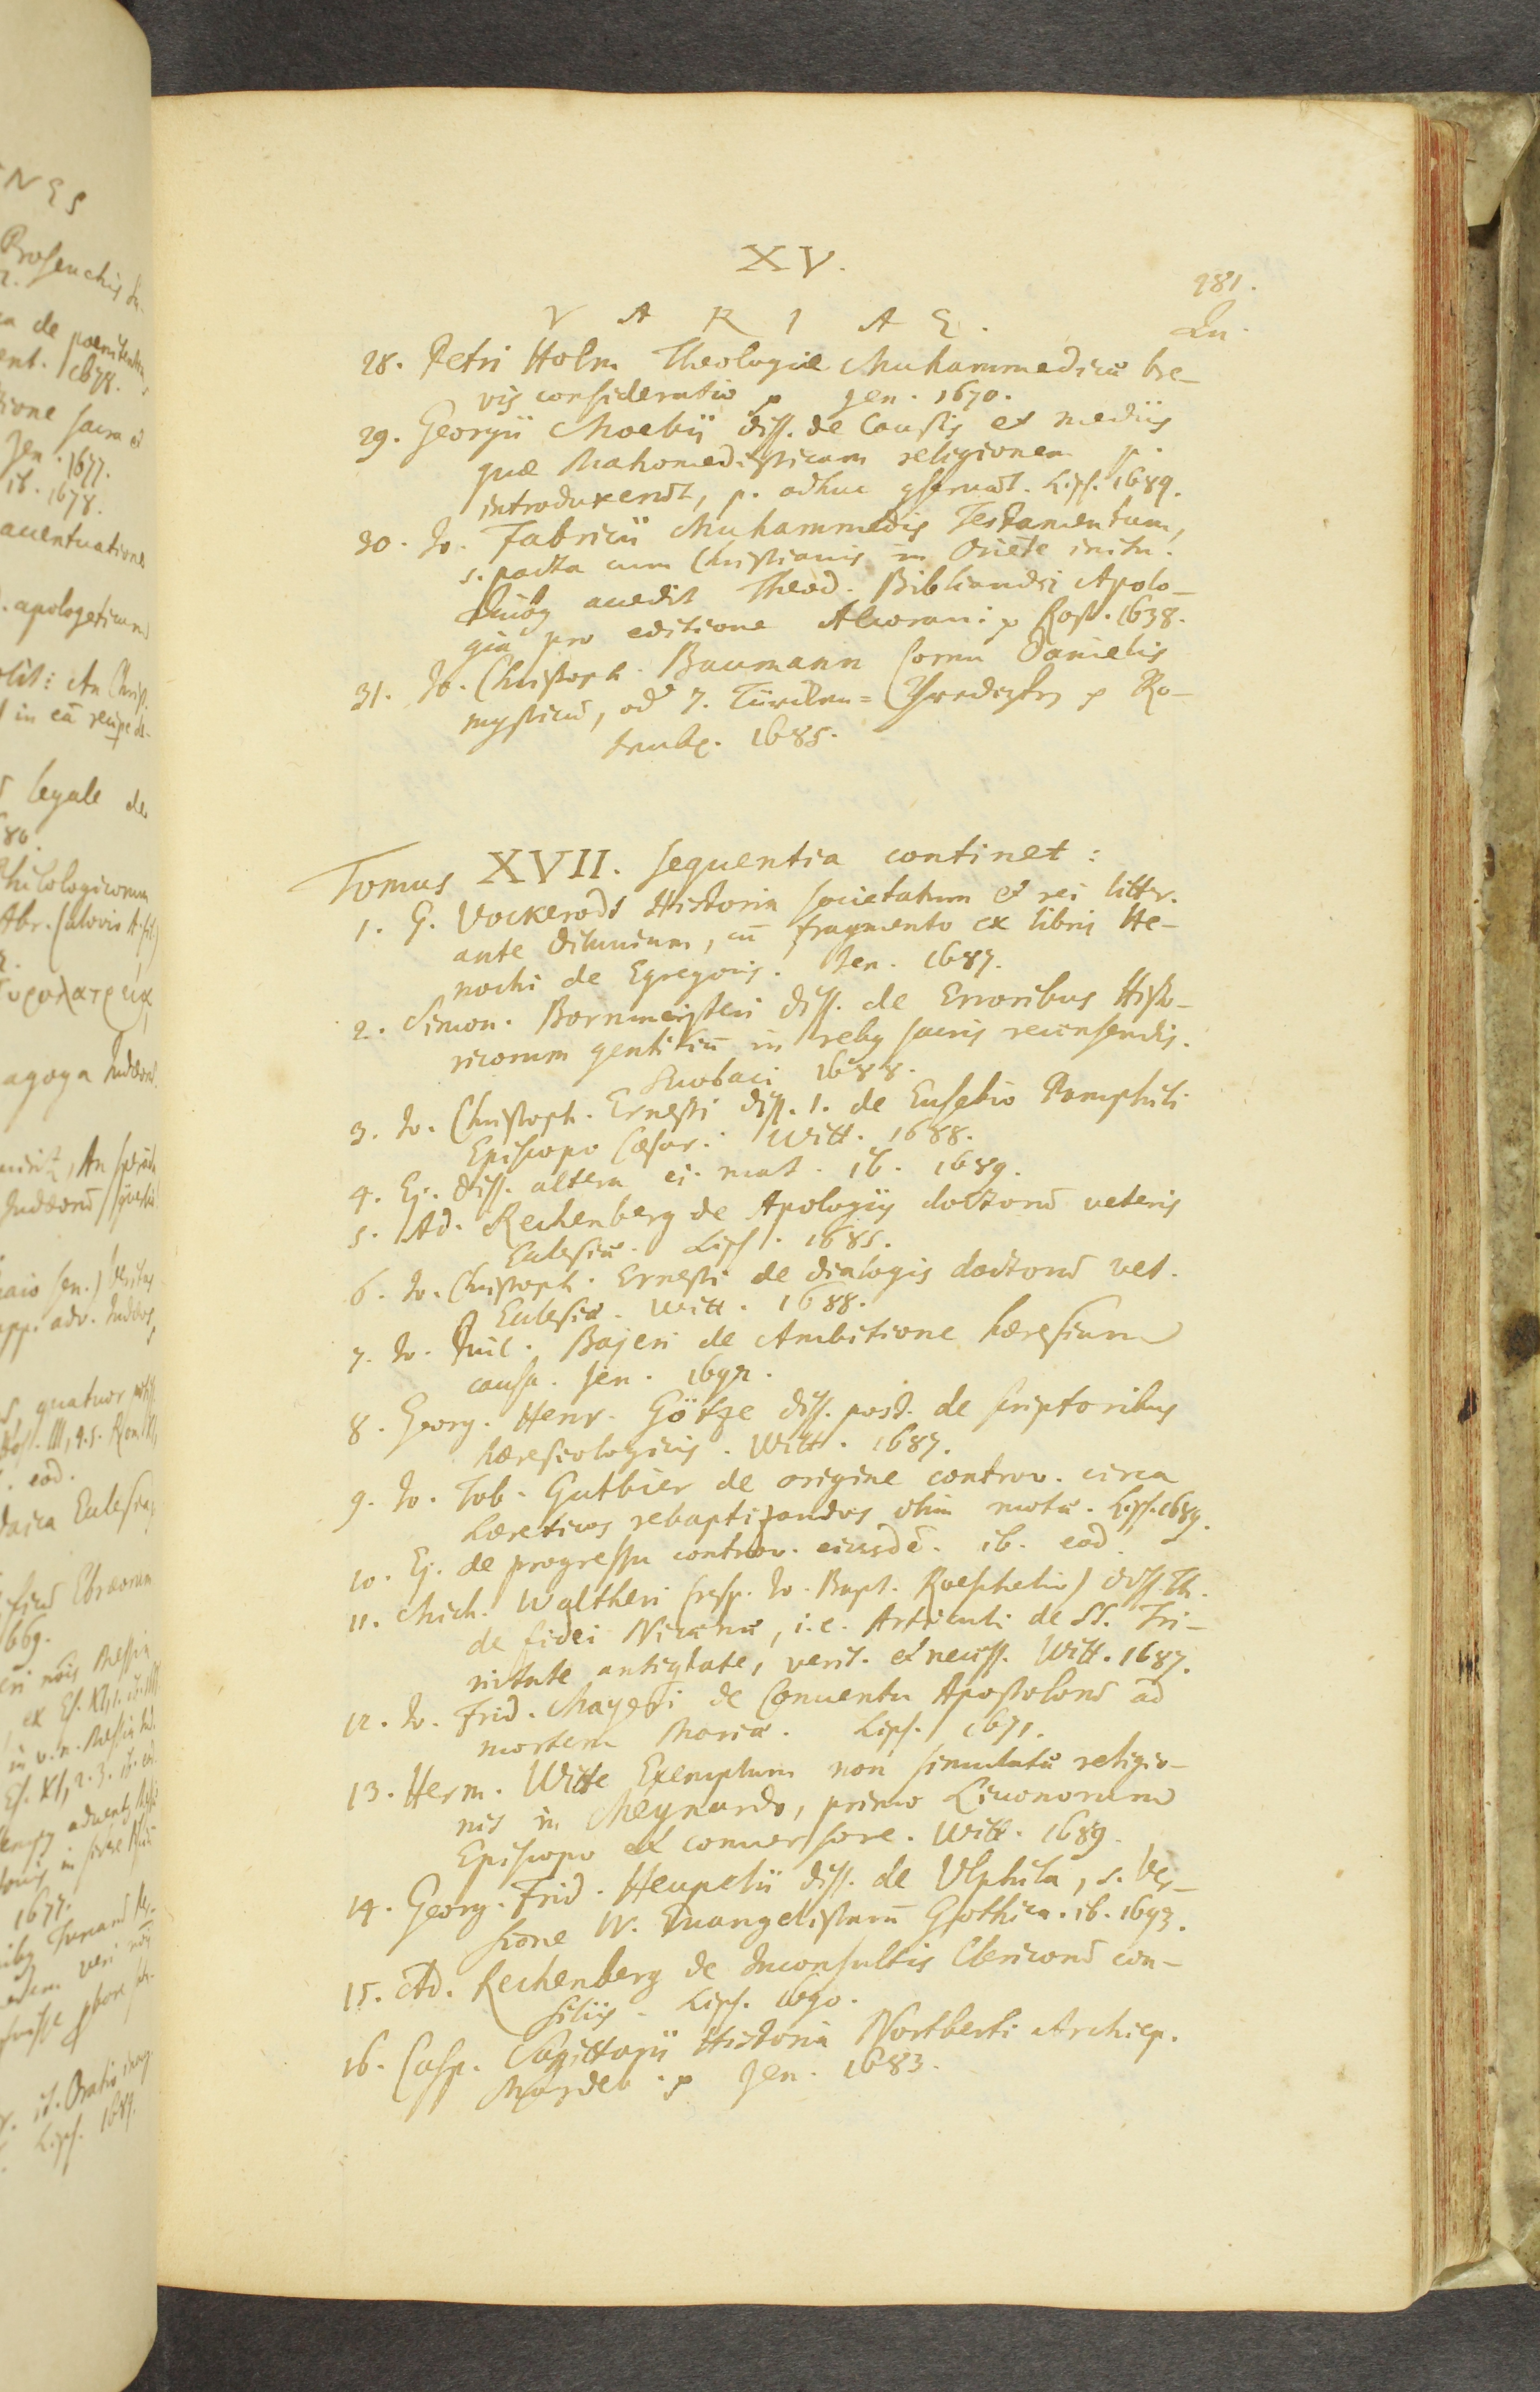 XV.
281.
VARIAE.
Qu.
28. Petri Holm Theologiæ Muhammedicæ bre-
vis consideratio p Jen. 1670.
29. Georgii Moebii diss. de Causis et mediis
quæ Mahomedisticam religionem p.
introduxerūt, p. adhuc 9seruāt. Lips. 1689.
30. Jo. Fabricii Muhammedis Testamentum,
s. pacta cum Christianis in Oriēte inita.
accedit Theod. Bibliandri Apolo-
gia pro editione Alcorani p Rost. 1638.
31. Jo. Christoph. Baumann Cornu Danielis
mysticū, od 7. Türcken= Predigten p Ro-
tenb. 1685.
Tomus XVII. sequentia continet:
1. G. Vockerodt Historia societatum et rei litter.
ante diluuium, cū fragmento ex libris He-
nochi de Egregoris. Jen. 1687.
2. Simon. Bornmeisteri diss. de Erroribus Histo-
ricorum gentiliū in reb9 sacris recensendis.
Suobaci 1688.
3. Jo. Christoph. Ernesti diss. 1. de Eusebio Pamphili
Episcopo Cæsar. Witt. 1688.
4. Ej. diss. altera ej. mat. ib. 1689.
5. Ad. Rechenberg de Apologiis doctorū veteris
Ecclesiæ. Lips. 1685.
6. Jo. Christoph. Ernesti de dialogis doctorū vet.
Ecclesiæ. Witt. 1688.
7. Jo. Guil. Bajeri de Ambitione hæresium
causa. Jen. 1692.
8. Georg. Henr. Götze diss. post. de scriptoribus
hæresiologicis. Witt. 1687.
9. Jo. Tob. Gutbier de origine controv. circa
hæreticos rebaptizandos olim motæ. Lips. 1689.
10. Ej. de progressu controv. eiusdē. ib. eod.
11. Mich. Waltheri (resp. Jo. Bapt. Roeschelio) diss. Th.
de fidei Nicænæ, i.e. Articuli de SS. Tri-
nitate antiqtate, verit. et necess. Witt. 1687.
12. Jo. Frid. Mayeri de Conventu Apostolorū ad
mortem Mariæ. Lips. 1671.
13. Herm. Witte Exemplum non simulatæ religio-
nis in Meynardo, primo Livonorum
Episcopo et conversore. Witt. 1689.
14. Georg. Frid. Heupelii diss. de Vlphila, s. Ver-
sione IV. Euangelistarū Gothica. ib. 1693.
15. Ad. Rechenberg de Inconsultis Clericorū con-
siliis. Lips. 1690.
16. Casp. Sagittarii Historia Nortberti Archiep.
Magdeb. p Jen. 1683.